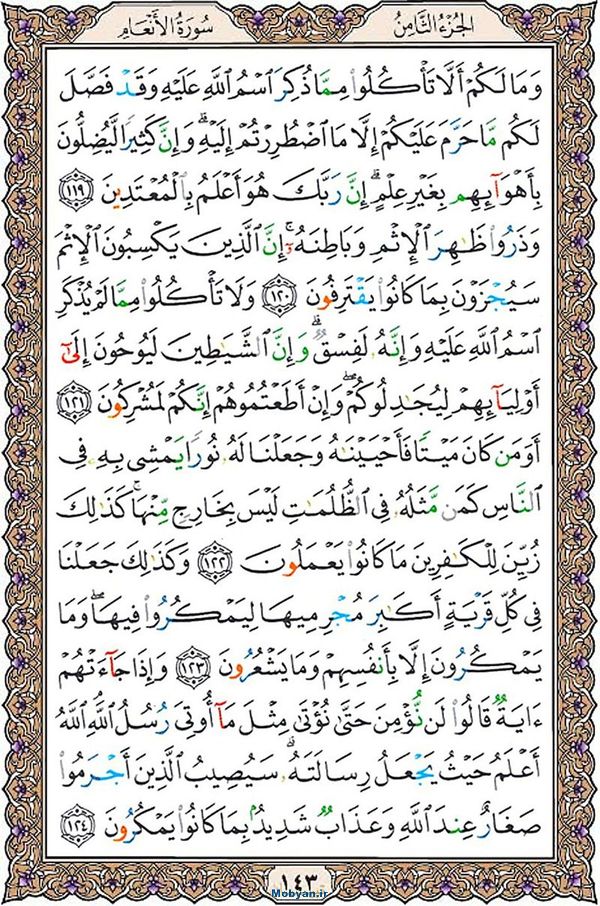 سُورَةُ الأَنْعَام الجُزْءُ الثَّامِنُ
وَمَا لَكُمْ أَلَّا تَأْكُلُوا۟ مِمَّا ذُكِرَ ٱسْمُ ٱللَّهِ عَلَيْهِ وَقَدْ فَصَّلَ
لَكُم مَّا حَرَّمَ عَلَيْكُمْ إِلَّا مَا ٱضْطُرِرْتُمْ إِلَيْهِ ۗ وَإِنَّ كَثِيرًا لَّيُضِلُّونَ
بِأَهْوَآئِهِم بِغَيْرِ عِلْمٍ ۗ إِنَّ رَبَّكَ هُوَ أَعْلَمُ بِٱلْمُعْتَدِينَ ١١٩
وَذَرُوا۟ ظَٰهِرَ ٱلْإِثْمِ وَبَاطِنَهُۥٓ ۚ إِنَّ ٱلَّذِينَ يَكْسِبُونَ ٱلْإِثْمَ
سَيُجْزَوْنَ بِمَا كَانُوا۟ يَقْتَرِفُونَ ١٢٠ وَلَا تَأْكُلُوا۟ مِمَّا لَمْ يُذْكَرِ
ٱسْمُ ٱللَّهِ عَلَيْهِ وَإِنَّهُۥ لَفِسْقٌ ۗ وَإِنَّ ٱلشَّيَٰطِينَ لَيُوحُونَ إِلَىٰٓ
أَوْلِيَآئِهِمْ لِيُجَٰدِلُوكُمْ ۖ وَإِنْ أَطَعْتُمُوهُمْ إِنَّكُمْ لَمُشْرِكُونَ ١٢١
أَوَمَن كَانَ مَيْتًا فَأَحْيَيْنَٰهُ وَجَعَلْنَا لَهُۥ نُورًا يَمْشِى بِهِۦ فِى
ٱلنَّاسِ كَمَن مَّثَلُهُۥ فِى ٱلظُّلُمَٰتِ لَيْسَ بِخَارِجٍ مِّنْهَا ۚ كَذَٰلِكَ
زُيِّنَ لِلْكَٰفِرِينَ مَا كَانُوا۟ يَعْمَلُونَ ١٢٢ وَكَذَٰلِكَ جَعَلْنَا
فِى كُلِّ قَرْيَةٍ أَكَٰبِرَ مُجْرِمِيهَا لِيَمْكُرُوا۟ فِيهَا ۖ وَمَا
يَمْكُرُونَ إِلَّا بِأَنفُسِهِمْ وَمَا يَشْعُرُونَ ١٢٣ وَإِذَا جَآءَتْهُمْ
ءَايَةٌ قَالُوا۟ لَن نُّؤْمِنَ حَتَّىٰ نُؤْتَىٰ مِثْلَ مَآ أُوتِىَ رُسُلُ ٱللَّهِ ۘ ٱللَّهُ
أَعْلَمُ حَيْثُ يَجْعَلُ رِسَالَتَهُۥ ۗ سَيُصِيبُ ٱلَّذِينَ أَجْرَمُوا۟
صَغَارٌ عِندَ ٱللَّهِ وَعَذَابٌ شَدِيدٌۢ بِمَا كَانُوا۟ يَمْكُرُونَ ١٢٤
١٤٣
Mobyan.ir